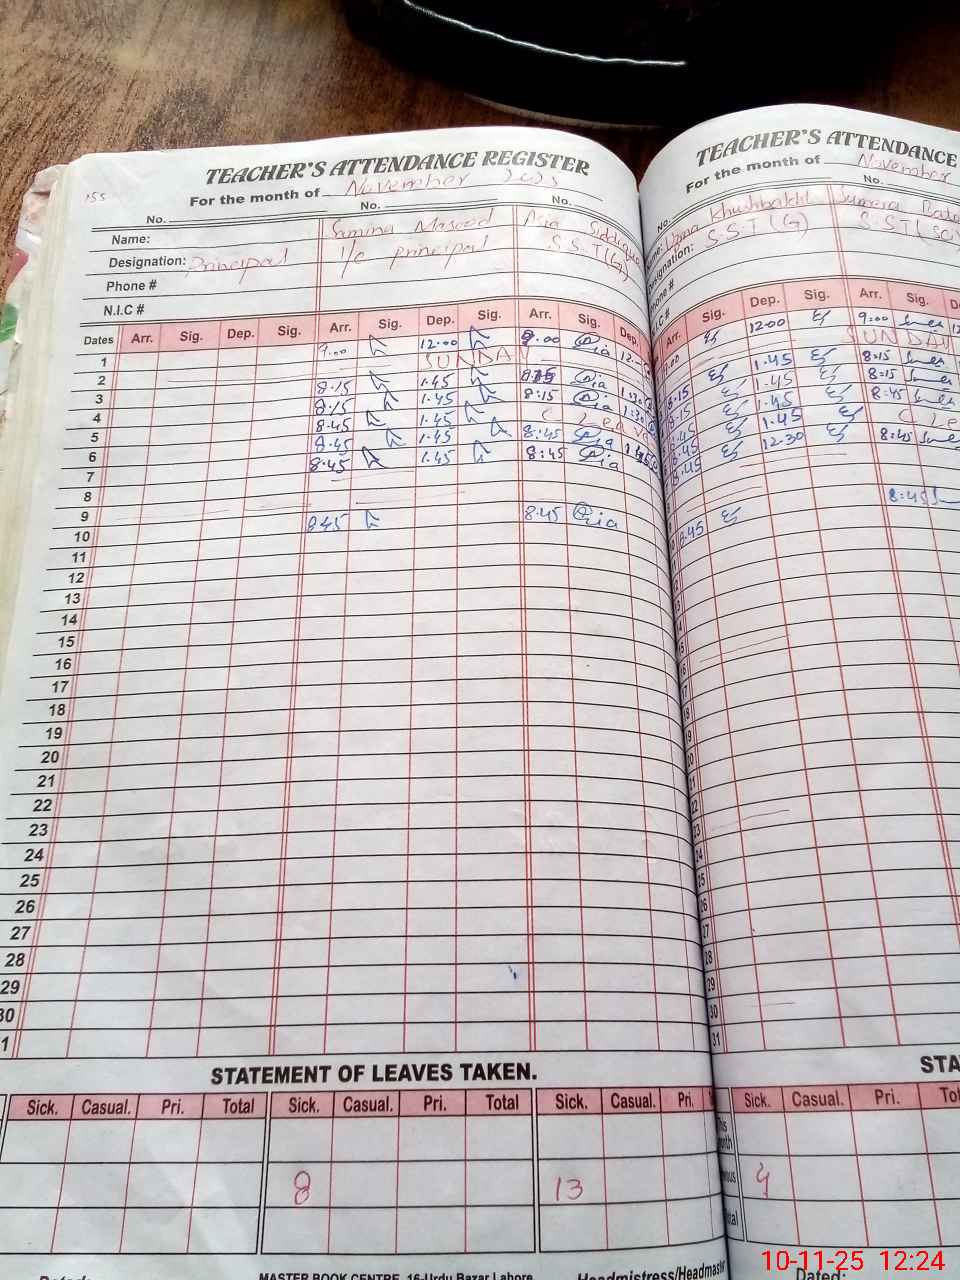 TEACHER'S ATTENDANCE REGISTER
For the month of November 2025
155
No. No. No.
Name: Samina Masood Asia Siddique
Designation: Principal I/C Principal S.S.T(G)
Phone #
N.I.C #
Dates Arr. Sig. Dep. Sig. Arr. Sig. Dep. Sig. Arr. Sig. Dep.
1 9.00 12.00 9.00 Asia
2 SUNDAY
3 8.15 1.45 Asia
4 8.15 1.45 8:15 Asia
5 8.45 1.45 Leave
6 8.45 1.45 8:45 Asia
7 8.45 1.45 8:45 Asia
8
9
10 8.45 8.45 Asia
11
12
13
14
15
16
17
18
19
20
21
22
23
24
25
26
27
28
29
30
1
STATEMENT OF LEAVES TAKEN.
Sick. Casual. Pri. Total Sick. Casual. Pri. Total Sick. Casual. Pri.
8 13
MASTER BOOK CENTRE, 16-Urdu Bazar Lahore
Headmistress/Headmaster
TEACHER'S ATTENDANCE
For the month of November
No. No.
Khushbakht Sumera
S.S.T(G) S.S.T(
Arr. Sig. Dep. Sig. Arr. Sig.
12.00 9:00
SUNDAY
8.15 1.45 8:15
8.15 1.45 8:15
8.45 1.45 8:45
8.45 1.45
8.45 12.30 8:45
8:45
8.45
22
23
24
25
26
27
28
29
30
31
STA
Sick. Casual. Pri.
4
Dated:
10-11-25 12:24